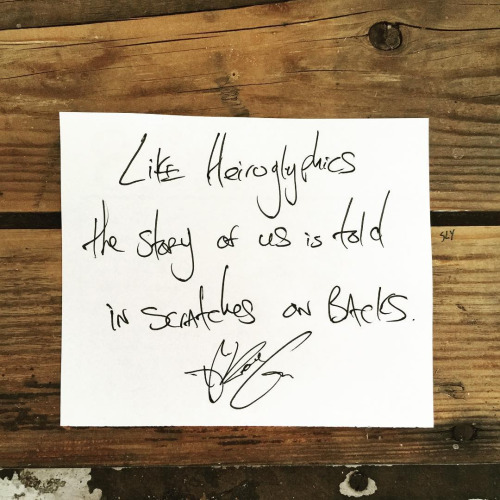 Like Heiroglyphics
the story of us is told
SLY
in scratches on Backs.